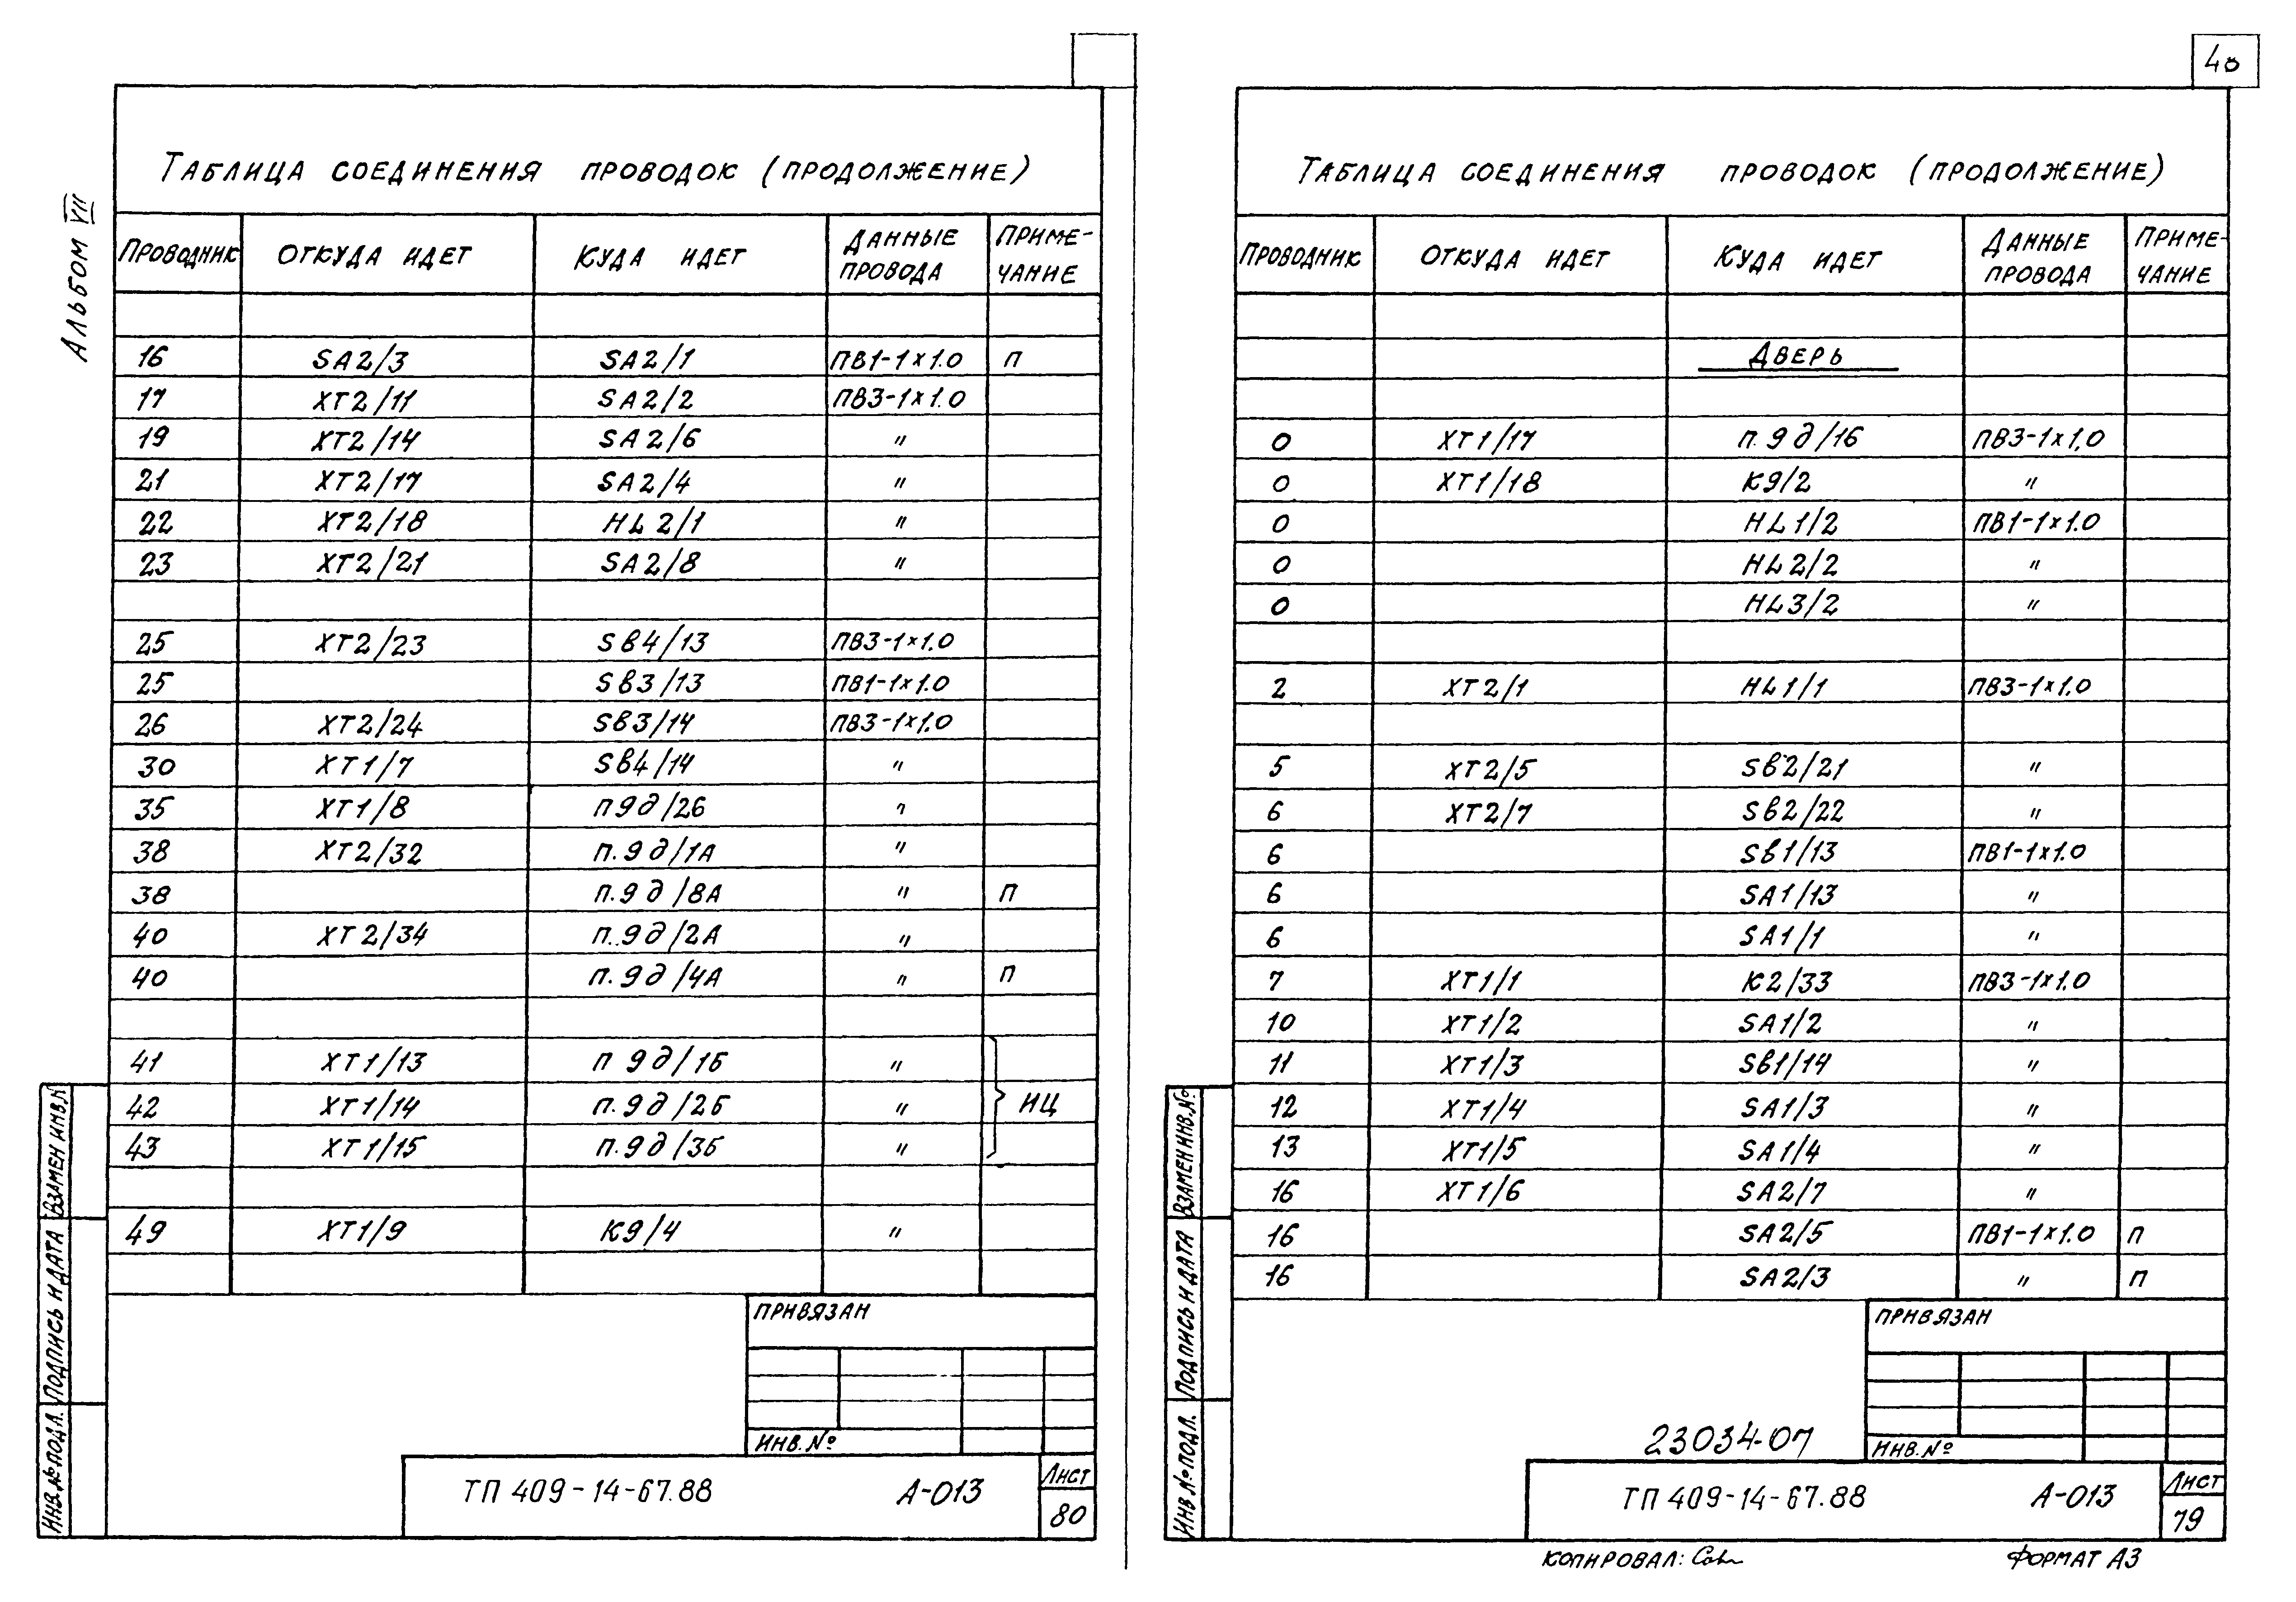 40
Альбом VII
Таблица соединения проводок (продолжение)
Проводник Откуда идет Куда идет Данные провода Примечание
16 SA2/3 SA2/1 ПВ1-1×1.0 П
17 ХТ2/11 SA2/2 ПВ3-1×1.0
19 ХТ2/14 SA2/6 "
21 ХТ2/17 SA2/4 "
22 ХТ2/18 HL2/1 "
23 ХТ2/21 SA2/8 "
25 ХТ2/23 SB4/13 ПВ3-1×1.0
25 SB3/13 ПВ1-1×1.0
26 ХТ2/24 SB3/14 ПВ3-1×1.0
30 ХТ1/7 SB4/14 "
35 ХТ1/8 п9д/26 "
38 ХТ2/32 п.9д/1А "
38 п.9д/8А " П
40 ХТ2/34 п.9д/2А "
40 п.9д/4А " П
41 ХТ1/13 п 9д/1Б "
42 ХТ1/14 п.9д/2Б " ИЦ
43 ХТ1/15 п.9д/3Б "
49 ХТ1/9 К9/4 "
Привязан
Инв.№
ТП 409-14-67.88 А-013
Лист
80
Взамен инв.№
Подпись и дата
Инв.№подл.
Таблица соединения проводок (продолжение)
Проводник Откуда идет Куда идет Данные провода Примечание
Дверь
0 ХТ1/17 п.9д/16 ПВ3-1×1,0
0 ХТ1/18 К9/2 "
0 HL1/2 ПВ1-1×1.0
0 HL2/2 "
0 HL3/2 "
2 ХТ2/1 HL1/1 ПВ3-1×1.0
5 ХТ2/5 SB2/21 "
6 ХТ2/7 SB2/22 "
6 SB1/13 ПВ1-1×1.0
6 SA1/13 "
6 SA1/1 "
7 ХТ1/1 К2/33 ПВ3-1×1.0
10 ХТ1/2 SA1/2 "
11 ХТ1/3 SB1/14 "
12 ХТ1/4 SA1/3 "
13 ХТ1/5 SA1/4 "
16 ХТ1/6 SA2/7 "
16 SA2/5 ПВ1-1×1.0 П
16 SA2/3 " П
Привязан
23034-07
Инв.№
ТП 409-14-67.88 А-013
Лист
79
Взамен инв.№
Подпись и дата
Инв №подл.
Копировал: Формат А3